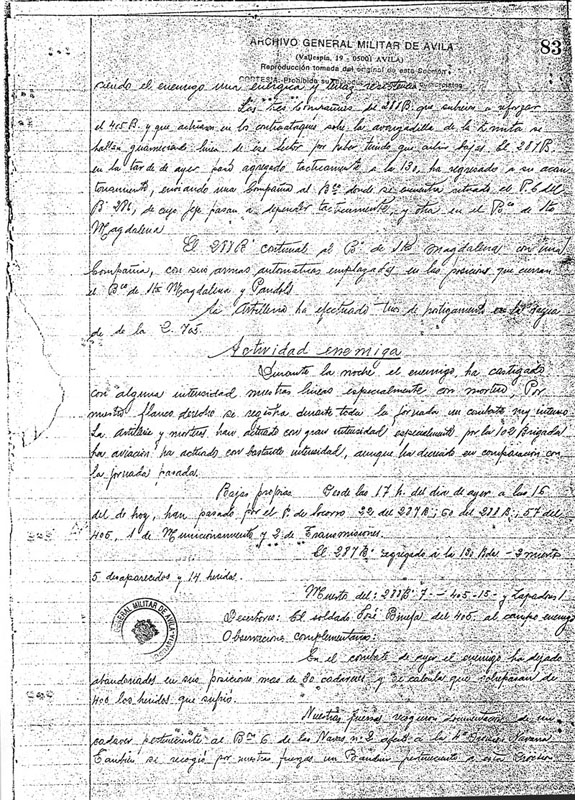 ARCHIVO GENERAL MILITAR DE AVILA
(Vallespin, 19 - 05001 AVILA)
Reproducción tomada del original de esta Sección
CORTESIA: Prohibida su
83
siendo el enemigo una enérgica y tenaz resistencia
Las tres Compañías de 288 B. que subieron a reforzar
el 405 B. y que actuaron en los contraataques sobre la avanzadilla de la Ermita se
hallan guarneciendo linea de ese sector por haber tenido que cubrir bajas. El 287 B.
en la tarde de ayer pasó agregado tacticamente a la 130, ha regresado a su acan
tonamiento, enviando una Compañia al Bco donde se encuentra situado el P. de
B. 286, de cuyo jefe pasan a depender tacticamente, y otra en el Bco de Sta
Magdalena
El 288 B. continua al B. de Sta Magdalena con una
Compañia, con sus armas automaticas emplazadas en las posiciones que cierran
el Bco de Sta Magdalena y Pandols
La Artilleria ha efectuado tiros de hostigamento en la
de de la C. 705.
Actividad enemiga
Durante la noche el enemigo, ha castigado
con alguna intensidad nuestras lineas especialmente con mortero, Por
nuestro flanco derecho se registra durante toda la jornada un combate muy intenso
La artilleria y morteros han actuado con gran intensidad especialmente por la 102 Brigada
la aviación ha actuado con bastante intensidad, aunque ha decrecido en comparación con
la jornada pasada.
Bajas propias. Desde las 17 h. del dia de ayer a las 15
del de hoy, han pasado por el P. de Socorro 22 del 287 B; 60 del 288 B; 57 del
405, 1 de Municionamento y 2 de Transmisiones.
El 287 B. agregado a la 130 Bda. - 2 muertos
5 desaparecidos y 14 heridos.
Muertos del: 288 B. 7 - 405 - 15 - y Zapadores 1
Desertores: El soldado José del 405 al campo enemigo
Observaciones complementarias:
En el combate de ayer el enemigo ha dejado
abandonados en sus posiciones mas de 30 cadaveres y se calcula que sobrepasan de
400 los heridos que sufrio.
Nuestras fuerzas recogieron documentacion de un
cadaver perteneciente al Bon 6 de las Navas nº 2 afecto a la 4ª División Navarra
Tambien se recogió por nuestras fuerzas un Banderin perteneciente a esta Division
GENERAL MILITAR DE AVILA